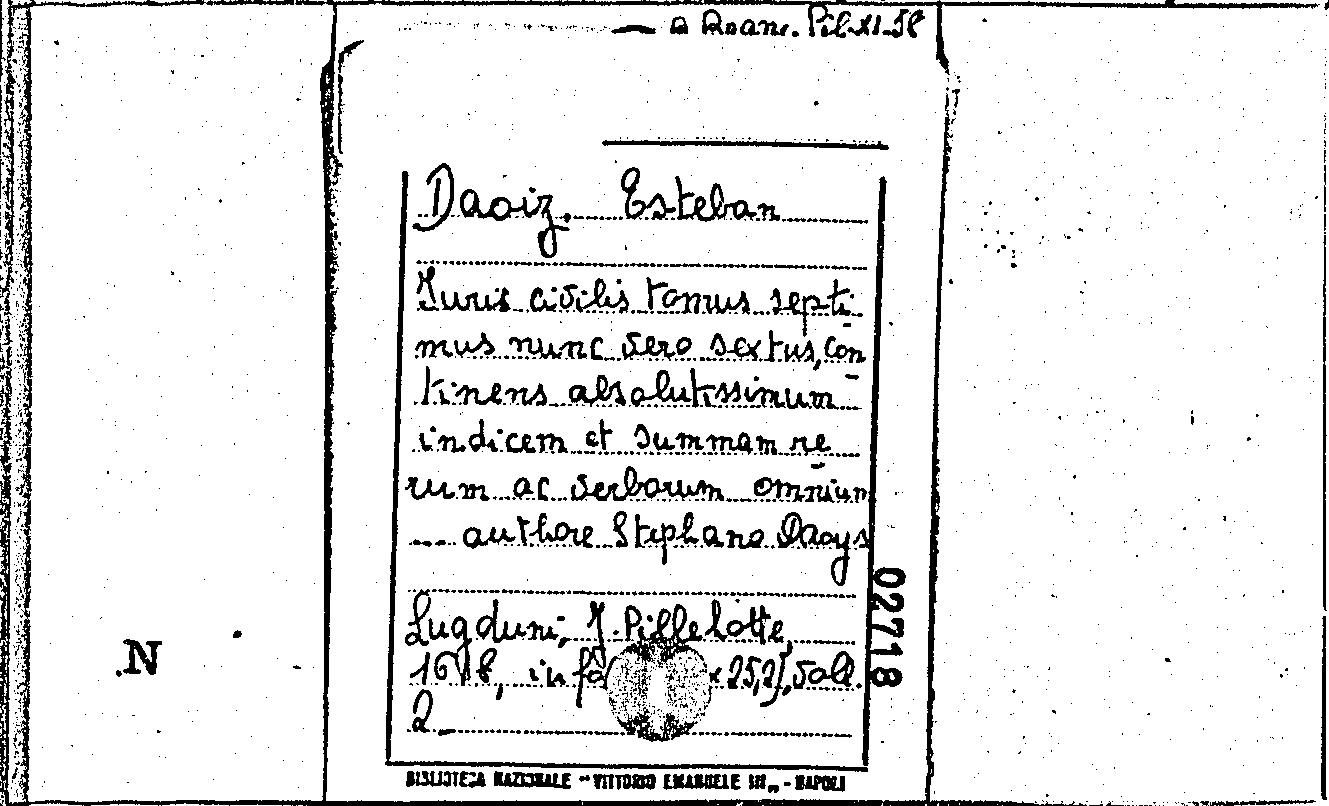 Branc. Pil. XI-58
Daoiz, Esteban
Juris civilis tomus septi-
mus nunc vero sextus, con-
tinens absolutissimum
indicem et summam re-
rum ac verborum omnium
... authore Stephano Daoys
Lugduni, J. Pillehotte,
1618, in fo 25,2], voll.
2
02718
N
BIBLIOTECA NAZIONALE "VITTORIO EMANUELE III" - NAPOLI